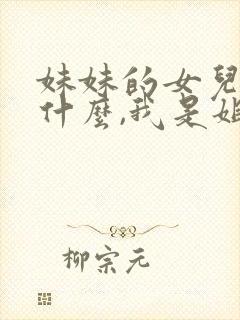 妹妹的女兒
什麼,我是姐
柳宗元